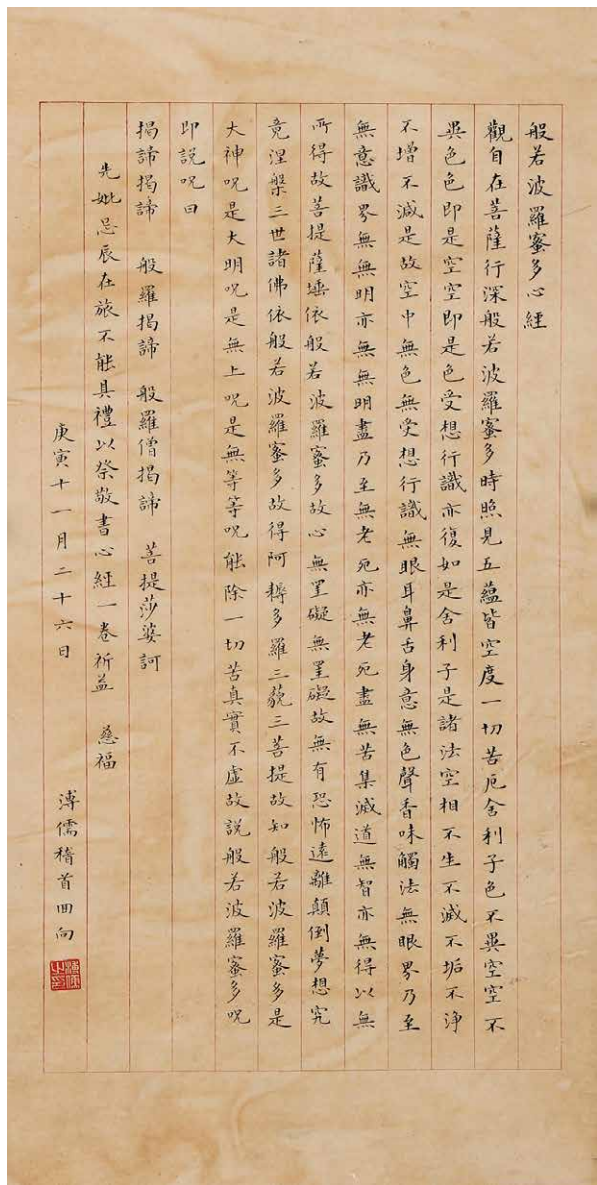 般若波羅蜜多心經
觀自在菩薩行深般若波羅蜜多時照見五蘊皆空度一切苦厄舍利子色不異空空不
異色色即是空空即是色受想行識亦復如是舍利子是諸法空相不生不滅不垢不淨
不增不減是故空中無色無受想行識無眼耳鼻舌身意無色聲香味觸法無眼界乃至
無意識界無無明亦無無明盡乃至無老死亦無老死盡無苦集滅道無智亦無得以無
所得故菩提薩埵依般若波羅蜜多故心無罣礙無罣礙故無有恐怖遠離顛倒夢想究
竟涅槃三世諸佛依般若波羅蜜多故得阿耨多羅三藐三菩提故知般若波羅蜜多是
大神咒是大明咒是無上咒是無等等咒能除一切苦真實不虛故說般若波羅蜜多咒
即說咒曰
揭諦揭諦 般羅揭諦 般羅僧揭諦 菩提莎婆訶
先妣忌辰在旅不能具禮以祭敬書心經一卷祈益 慈福
庚寅十一月二十六日 溥儒稽首回向
溥儒之印